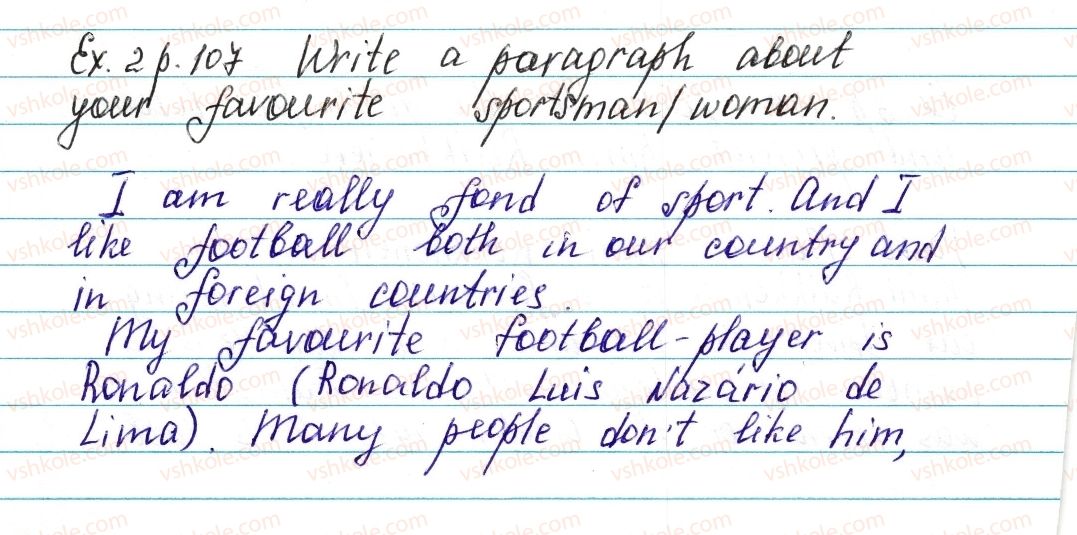 Ex. 2 p. 107 Write a paragraph about
your favourite sportsman/woman.
I am really fond of sport. And I
like football both in our country and
in foreign countries.
My favourite football-player is
Ronaldo (Ronaldo Luis Nazário de
Lima). Many people don't like him,